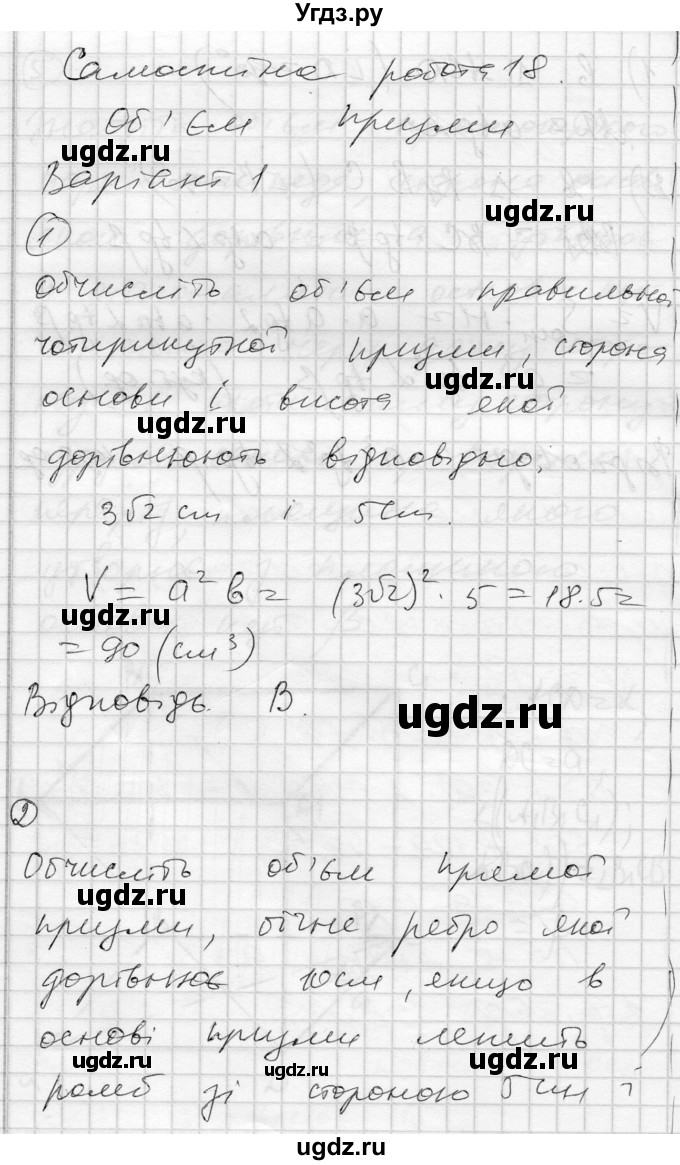 Угдз.ру
Самостійна робота 18.
Об'єм призми
ugdz.ru
Варіант 1
ugdz.ru
1
Обчисліть об'єм правильної
чотирикутної призми, сторона
ugdz.ru
основи і висота якої
ugdz.ru
дорівнюють відповідно:
3√2 см і 5 см.
V = a² b = (3√2)² · 5 = 18 · 5 =
ugdz.ru
= 90 (см³)
Відповідь. В.
ugdz.ru
2
Обчисліть об'єм прямої
ugdz.ru
призми, бічне ребро якої
дорівнює 10 см, якщо в
основі призми лежить
ugdz.ru ugdz.ru ugdz.ru
ромб зі стороною 5 см і
ugdz.ru